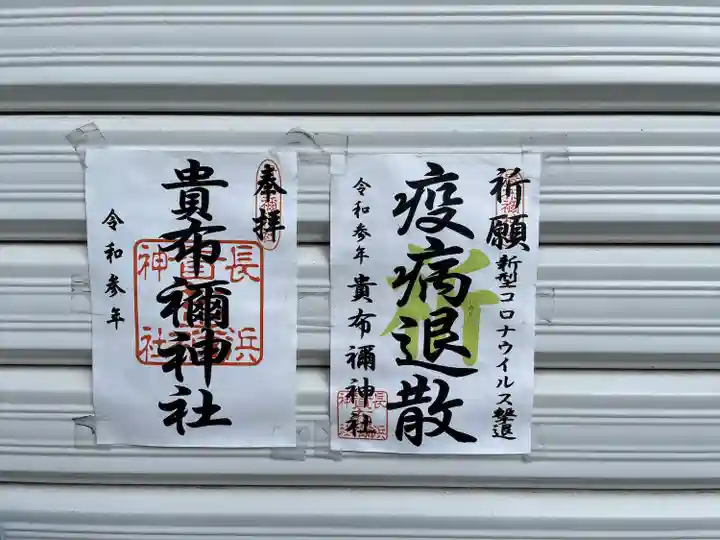 奉拝
貴布禰神社
令和参年
長浜
貴布禰
神社
祈願
新型コロナウイルス撃退
疫病退散
祈
令和参年 貴布禰神社
長浜
神社